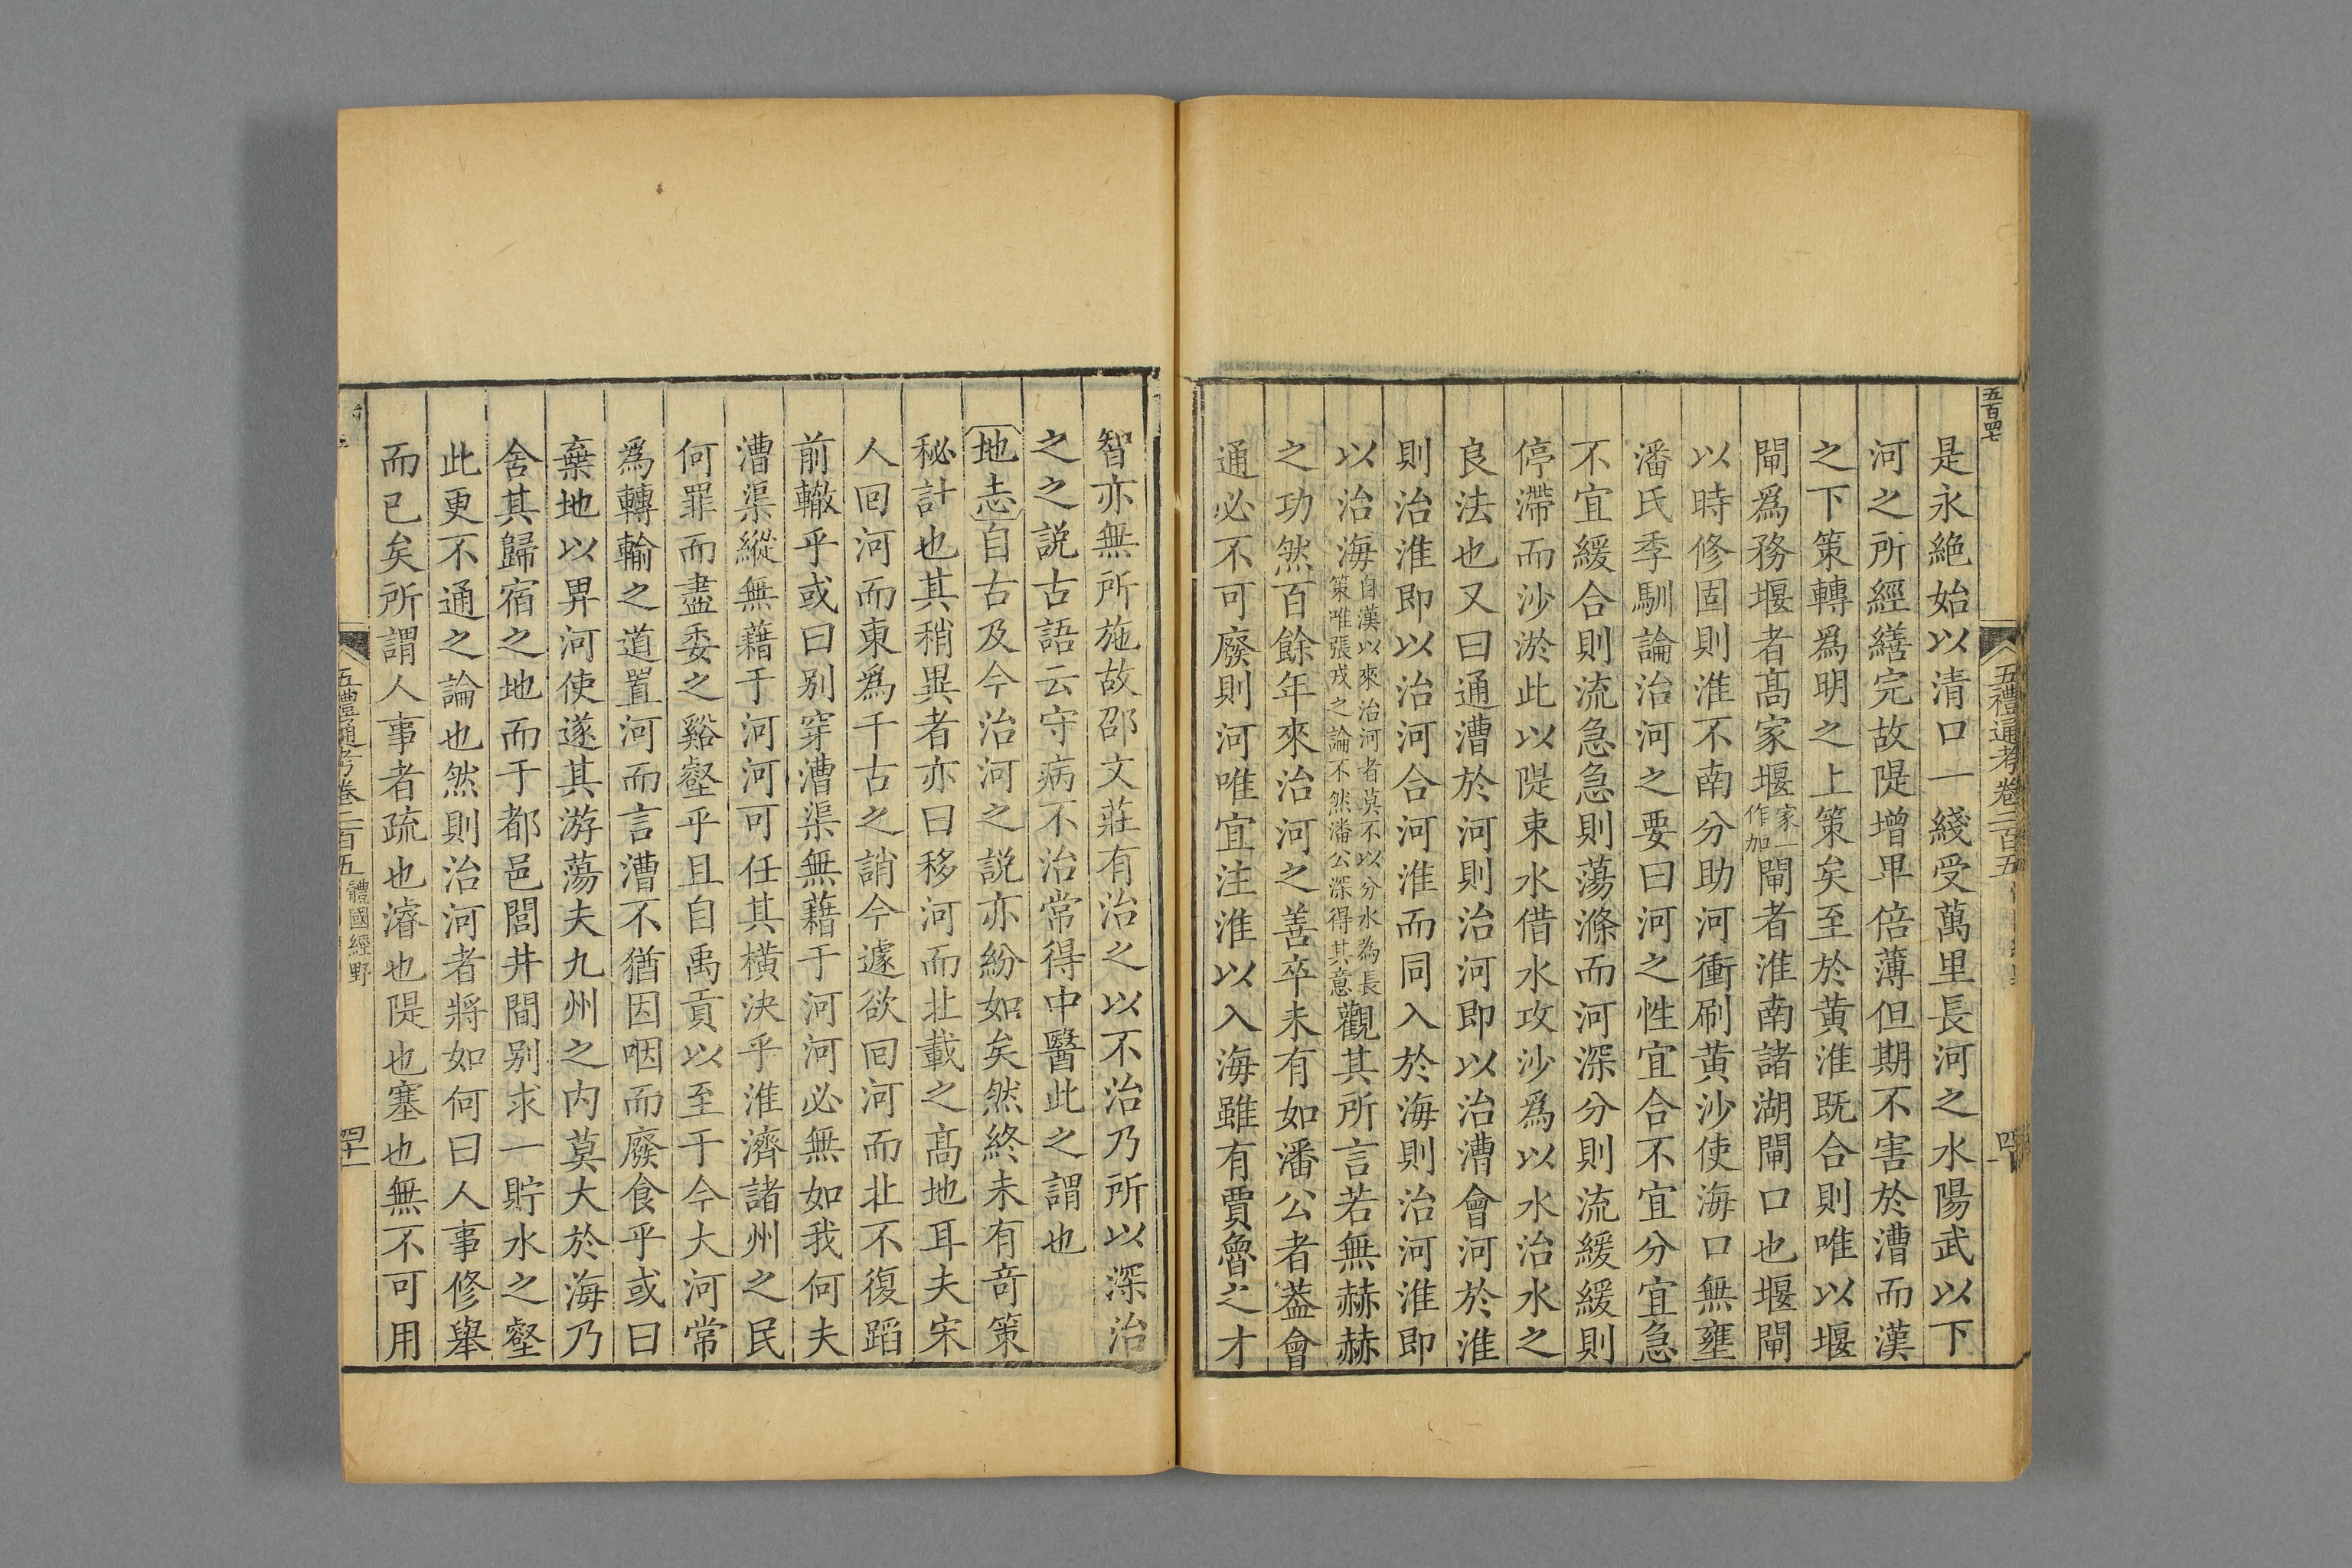 五百四七
五禮通考卷二百五
是永絶始以清口一綫受萬里長河之水陽武以下
河之所經繕完故隄增卑倍薄但期不害於漕而漢
之下策轉爲明之上策矣至於黄淮既合則唯以堰
閘爲務堰者髙家堰家一作加閘者淮南諸湖閘口也堰閘
以時修固則淮不南分助河衝刷黄沙使海口無壅
潘氏季馴論治河之要曰河之性宜合不宜分宜急
不宜緩合則流急急則蕩滌而河深分則流緩緩則
停滯而沙淤此以隄束水借水攻沙爲以水治水之
良法也又曰通漕於河則治河即以治漕會河於淮
則治淮即以治河合河淮而同入於海則治河淮即
以治海自漢以來治河者莫不以分水為長策唯張戎之論不然潘公深得其意觀其所言若無赫赫
之功然百餘年來治河之善卒未有如潘公者葢會
通必不可廢則河唯宜注淮以入海雖有賈魯之才
智亦無所施故邵文莊有治之以不治乃所以深治
之之説古語云守病不治常得中醫此之謂也
地志自古及今治河之説亦紛如矣然終未有竒策
秘計也其稍異者亦曰移河而北載之髙地耳夫宋
人回河而東爲千古之誚今遽欲回河而北不復蹈
前轍乎或曰别穿漕渠無藉于河河必無如我何夫
漕渠縱無藉于河河可任其橫決乎淮濟諸州之民
何罪而盡委之谿壑乎且自禹貢以至于今大河常
爲轉輸之道置河而言漕不猶因咽而廢食乎或曰
棄地以畀河使遂其游蕩夫九州之内莫大於海乃
舍其歸宿之地而于都邑閭井間别求一貯水之壑
此更不通之論也然則治河者將如何曰人事修舉
而已矣所謂人事者疏也濬也隄也塞也無不可用
五禮通考卷二百五 體國經野